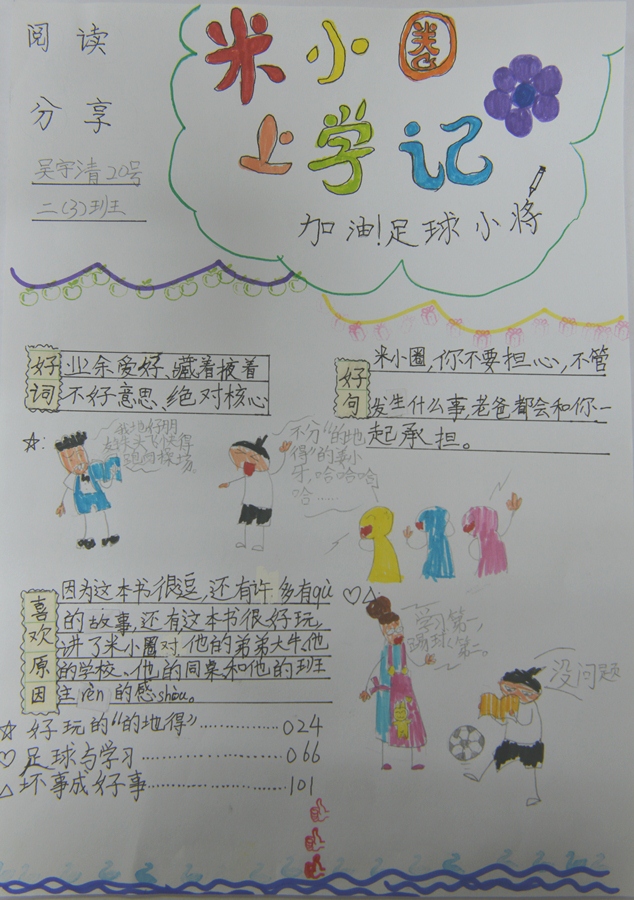 阅读
分享
吴守清 20号
二(3)班
米小圈
上学记
加油!足球小将
好词
业余爱好、藏着掖着
不好意思、绝对核心
好句
米小圈,你不要担心,不管
发生什么事,老爸都会和你一
起承担。
☆:
我地好朋
跑向操场。
不分“的地
得”的姜小
牙,哈哈哈哈
哈……
喜欢原因
因为这本书很逗,还有许多有qù
的故事,还有这本书很好玩,
讲了米小圈对他的弟弟大牛、他
的学校、他的同桌和他的班班
主rèn的感shòu。
♡△:
学习第一,
踢球第二。
没问题
☆好玩的“的地得”……………024
♡足球与学习……………066
△坏事成好事……………101